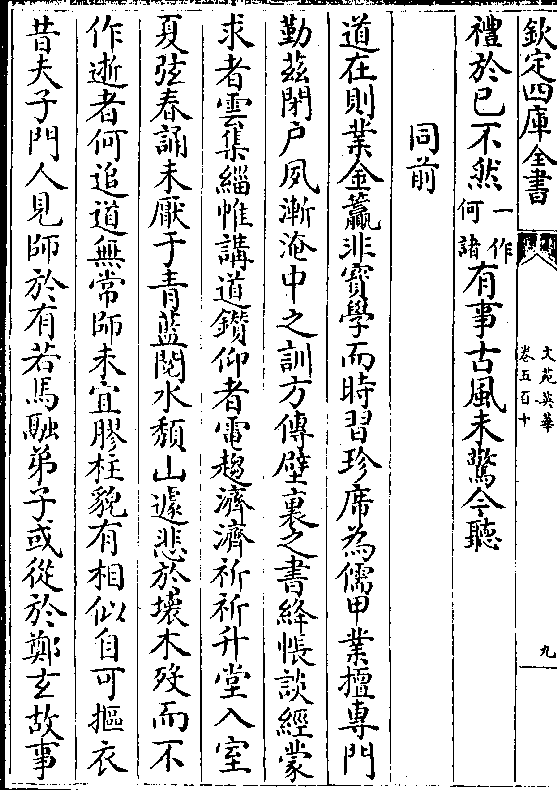 欽定四庫全書
文苑英華
卷五百十
九
禮於已不然一作何諸有事古風未驚今聽
同前
道在則業金籯非寶學而時習珍席為儒甲業擅專門
勤茲閉戸夙漸淹中之訓方傳壁裏之書絳帳談經蒙
求者雲集緇帷講道鑚仰者雷趨濟濟祈祈升堂入室
夏弦春誦未厭于青藍閱水頽山遽悲於壞木歿而不
作逝者何追道無常師未宜膠柱貌有相似自可摳衣
昔夫子門人見師於有若馬融弟子或從於鄭玄故事